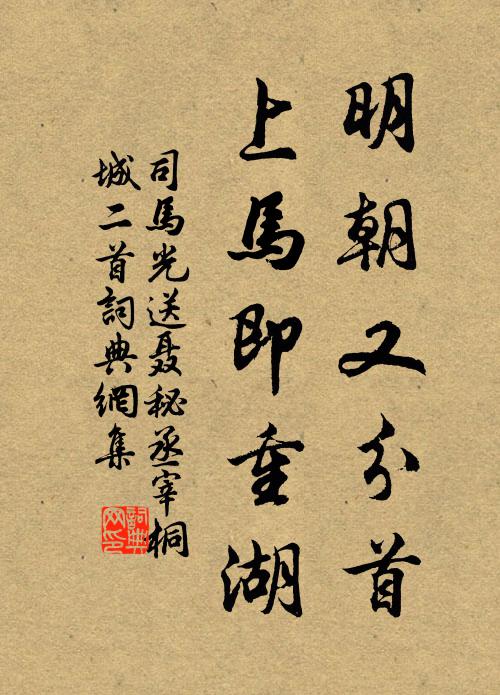 明朝又分首
上馬即重湖
司馬光送聂秘丞宰桐
城二首詞典網集